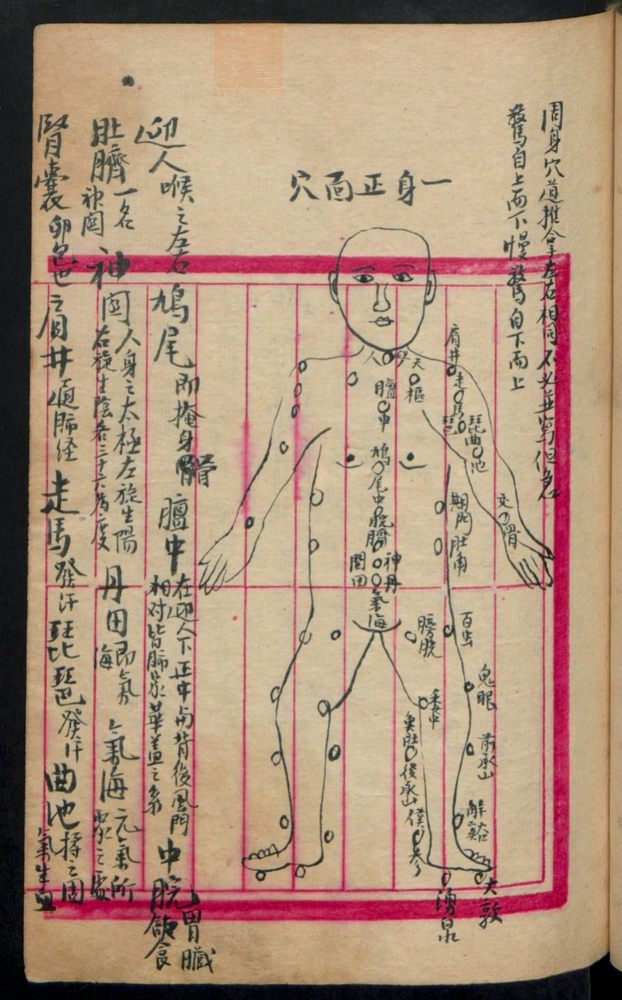 周身穴道推拿左右相同不必並寫但急
驚自上而下慢驚自下而上
一身正面穴
肩井
走馬
琵琶
曲池
交骨
天樞
人迎
膻中
鳩尾
中脘
臍
神闕
丹田
氣海
期門
肚角
膀胱
百虫
鬼眼
委中
前承山
魚肚
後承山
僕參
解谿
大敦
湧泉
迎人喉之左右 鳩尾即掩身 膻中在迎人下正中與背後風門
相對皆肺家華蓋之系 中脘胃臟
飲食
肚臍一名
神闕 神闕人身之太極左旋生陽
右旋生陰各三十六為度 丹田即氣
海 氣海元氣所
聚之處
腎囊卵包也 肩井通肺經 走馬發汗 琵琶發汗 曲池